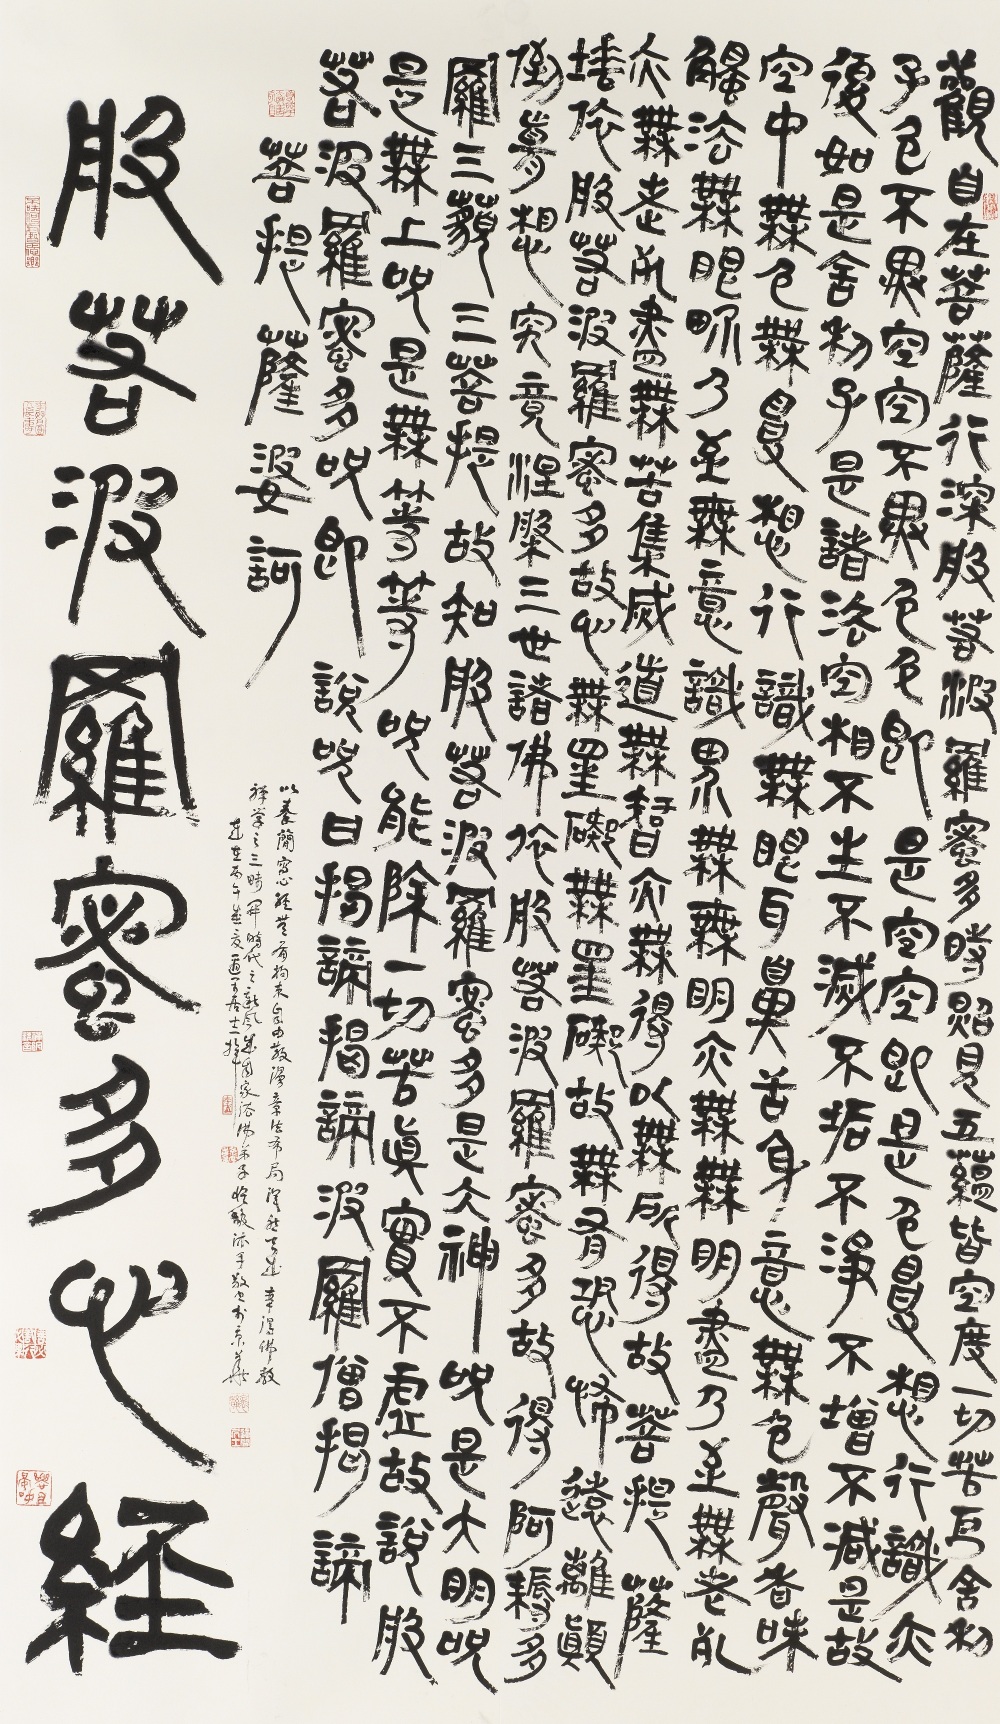 觀自在菩薩行深般若波羅蜜多時照見五蘊皆空度一切苦厄舍利
子色不異空空不異色色即是空空即是色受想行識亦
復如是舍利子是諸法空相不生不滅不垢不淨不增不減是故
空中無色無受想行識無眼耳鼻舌身意無色聲香味
觸法無眼界乃至無意識界無無明亦無無明盡乃至無老死
亦無老死盡無苦集滅道無智亦無得以無所得故菩提薩
埵依般若波羅蜜多故心無罣礙無罣礙故無有恐怖遠離顛
倒夢想究竟涅槃三世諸佛依般若波羅蜜多故得阿耨多
羅三藐三菩提故知般若波羅蜜多是大神呪是大明呪
是無上呪是無等等呪能除一切苦真實不虛故說般
若波羅蜜多呪即說呪曰揭諦揭諦波羅僧揭諦
菩提薩婆訶
以秦簡寫心經自由散漫章法布局渾然天成佛教
禪學之三時代之新風
歲在丙午
般若波羅蜜多心經